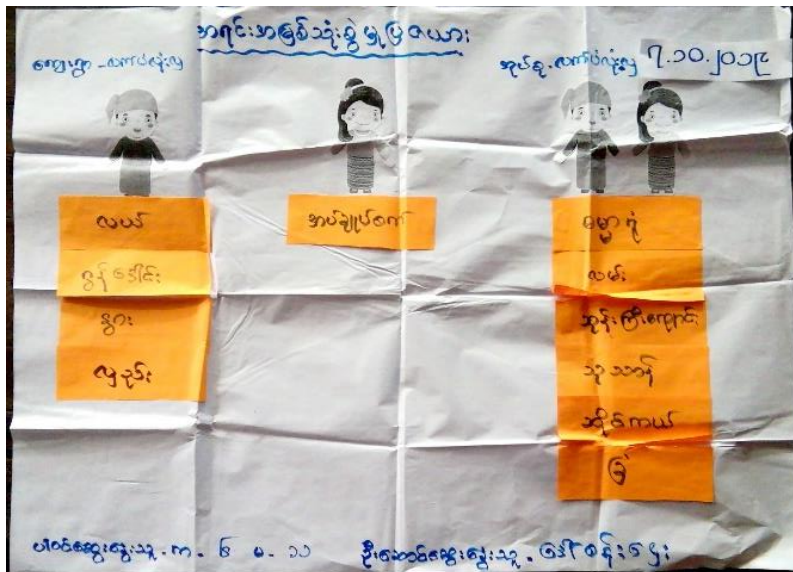 အရင်းအမြစ်သုံးစွဲမှုပြဇယား
ကျေးရွာ - လက်ပံလှ
အုပ်စု - လက်ပံလှ ၇.၁၀.၂၀၁၉
လယ်
ထွန်ဒေါင်း
နွား
လှည်း
အပ်ချုပ်စက်
ဓမ္မာရုံ
လမ်း
ဘုန်းကြီးကျောင်း
သုသာန်
ဆိုင်ကယ်
ခြံ
ပါဝင်ဆွေးနွေးသူ - က - ၆ မ - ၁၁ ဦးဆောင်ဆွေးနွေးသူ - ဒေါ်စန်းဌေး